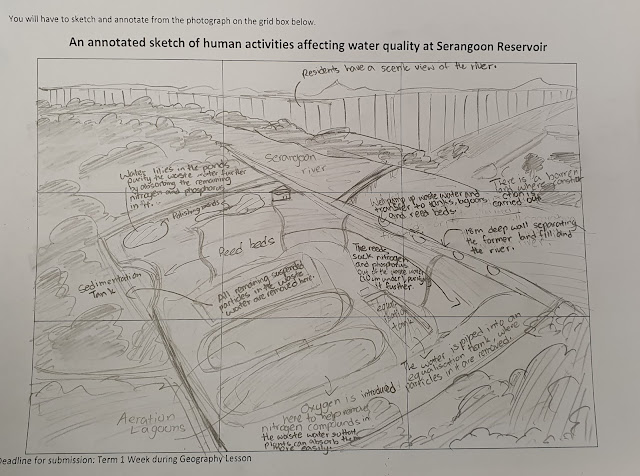 You will have to sketch and annotate from the photograph on the grid box below.
An annotated sketch of human activities affecting water quality at Serangoon Reservoir
Residents have a scenic view of the river.
Serangoon
river
Water lilies in the ponds
purify the waste water further
by absorbing the remaining
nitrogen and phosphorus
in it.
Polishing ponds
There is a barren
land where
carried out
pump up waste water and
transfer to tanks, lagoons
and reed beds.
18m deep wall separating
the former land fill and
the river.
Reed beds
The reeds
suck nitrogen
and phosphorus
out of the waste water
purify
it further.
Sedimentation
Tank
All remaining suspended
particles in the waste
water are removed here.
tank
The water is piped into an
equalisation tank, where
particles in it are removed.
Aeration
Lagoons
Oxygen is introduced
here to help remove
nitrogen compounds in
the waste water so that
plants can absorb them
more easily.
Deadline for submission: Term 1 Week during Geography Lesson